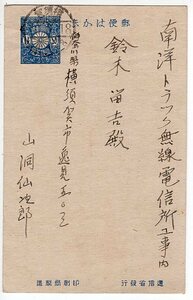 郵便はがき
南洋トラック無線電信所工事内
鈴木留吉殿
神奈川県横須賀市逸見五〇三
山洞仙次郎
逓信省発行
印刷局製造